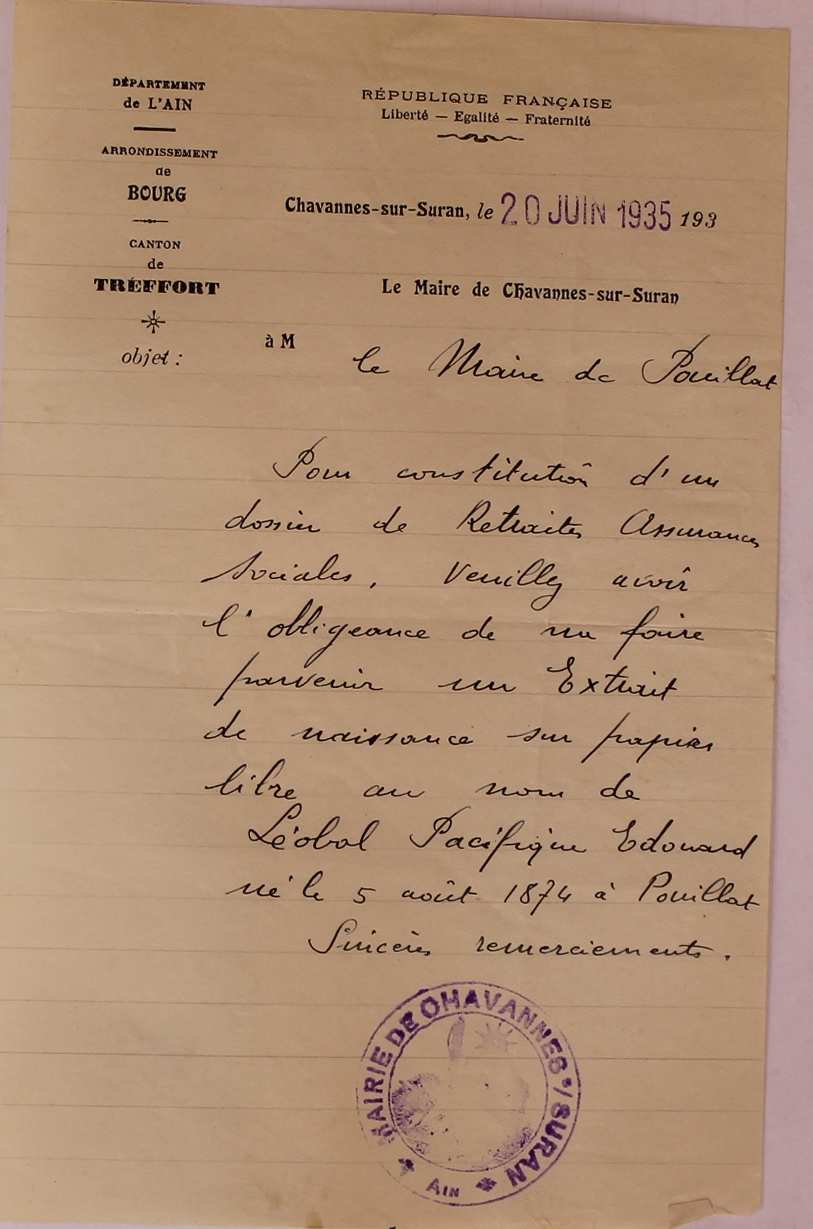 DÉPARTEMENT
de L'AIN
ARRONDISSEMENT
de
BOURG
CANTON
de
TRÉFFORT
objet :
RÉPUBLIQUE FRANÇAISE
Liberté — Egalité — Fraternité
Chavannes-sur-Suran, le 20 JUIN 1935 193
Le Maire de Chavannes-sur-Suran
à M le Maire de Pouillat
Pour constitution d'un
dossier de Retraites Assurances
sociales, Veuillez avoir
l'obligeance de me faire
parvenir un Extrait
de naissance sur papier
libre au nom de
Léobal Pacifique Edouard
né le 5 août 1874 à Pouillat
Sincères remerciements.
MAIRIE DE CHAVANNES s/ SURAN
AIN